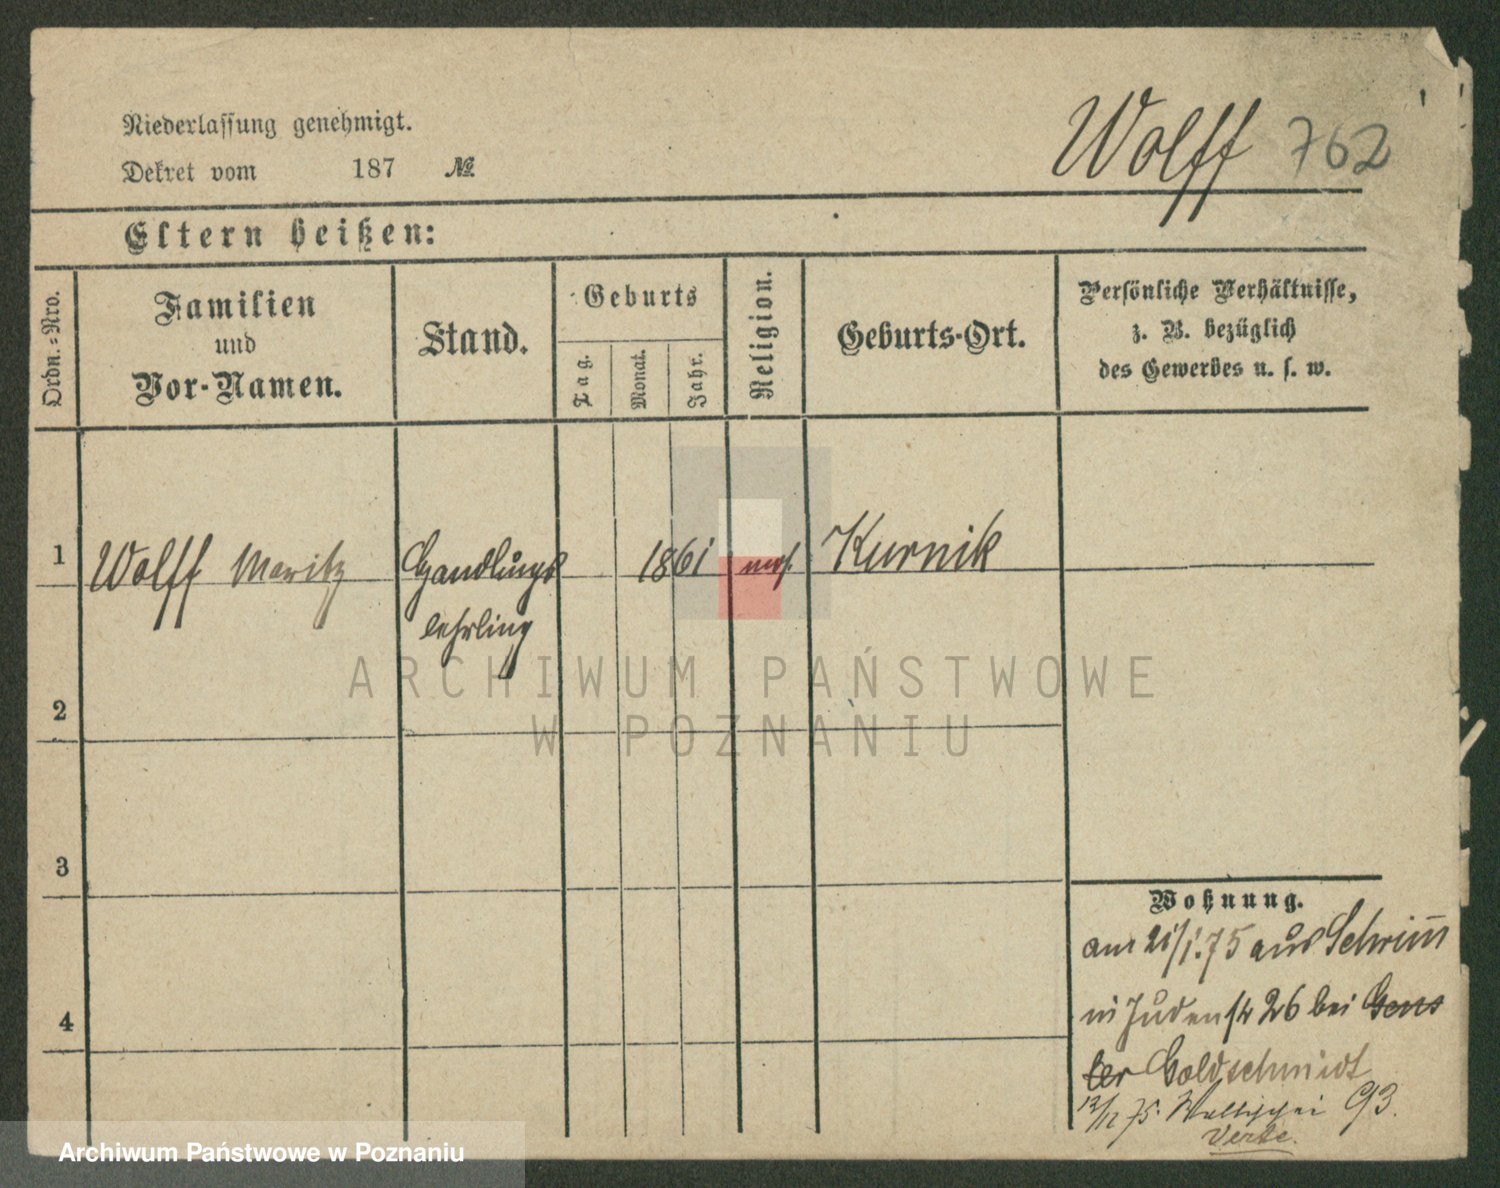 Niederlassung genehmigt.
Dekret vom 187 №
Wolff 762
Eltern heißen:
Ordn.-Nro.
Familien
und
Vor-Namen.
Stand.
Geburts
Tag.
Monat.
Jahr.
Religion.
Geburts-Ort.
Persönliche Verhältnisse,
z. B. bezüglich
des Gewerbes u. s. w.
1 Wolff Moritz Handlungs 1861 mos. Kurnik
lehrling
2
3
4
Wohnung.
am 21/1.75 aus Schrim̄
in Judenstr 26 bei Gens
ler Goldschmidt
12/12 75. Wallischei 93.
ARCHIWUM PAŃSTWOWE
W POZNANIU
Archiwum Państwowe w Poznaniu